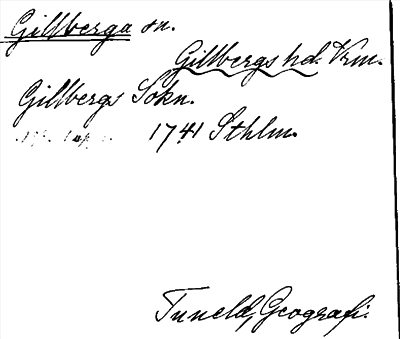 Gillberga sn.
Gillbergs hd. Vrm.
Gillbergs Sokn.
1741 Sthlm.
Tuneld, Geografi.